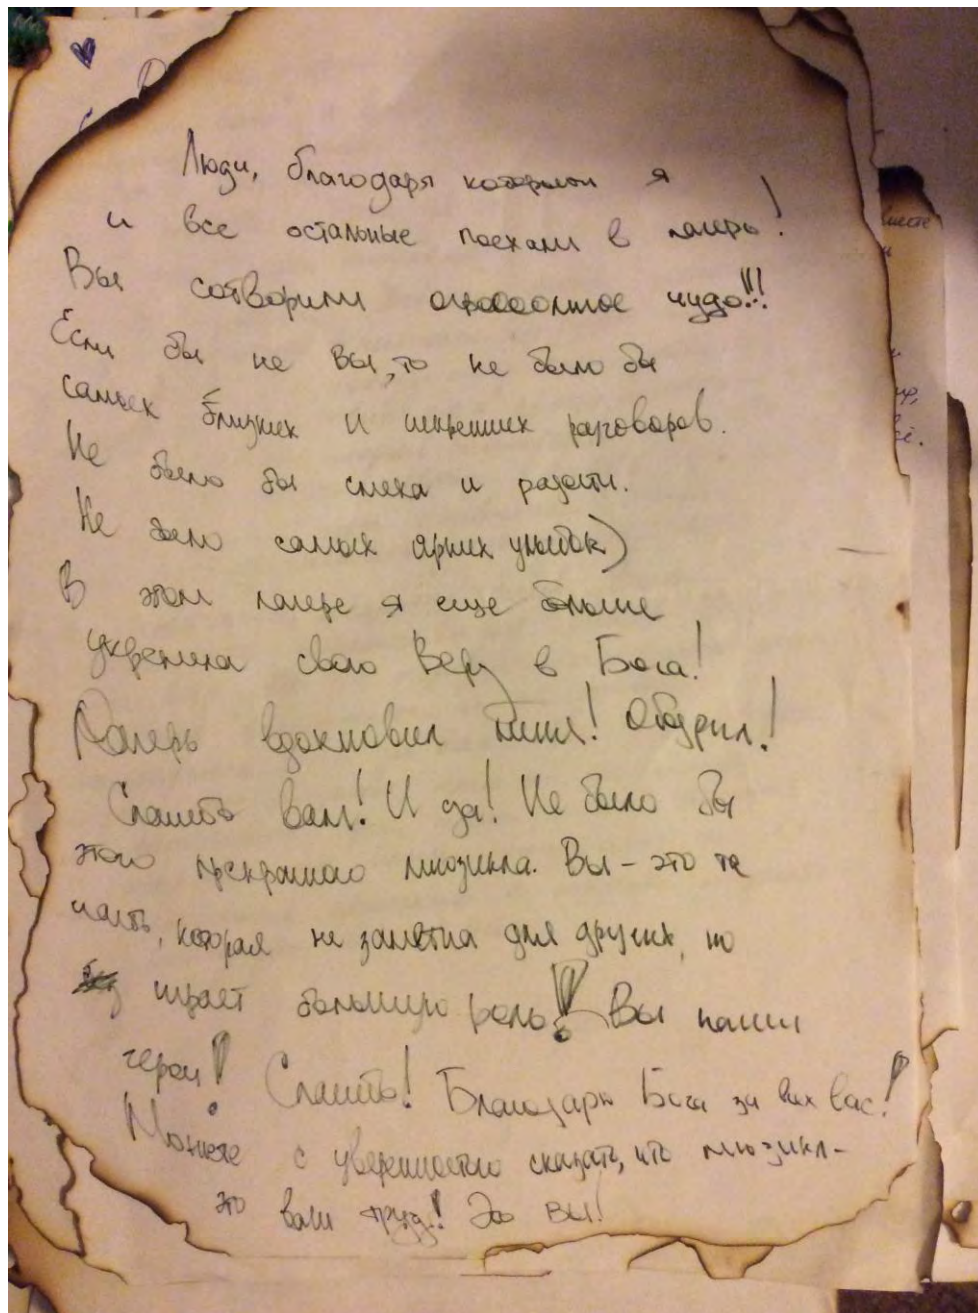 Люди, благодаря которым я
и все остальные поехали в лагерь!
Вы сотворили огромное чудо!!!
Если бы не вы, то не было бы
самых близких и искренних разговоров.
Не было бы смеха и радости.
Не было самых ярких улыбок)
В этом лагере я еще больше
укрепила свою Веру в Бога!
Лагерь вдохновил меня! Ободрил!
Спасибо вам! И да! Не было бы
этого прекрасного мюзикла. Вы - это та
часть, которая не заметна для других, но
играет большую роль! Вы наши
герои! Спасибо! Благодарю Бога за всех вас!
Можете с уверенностью сказать, что мюзикл-
это ваш труд! Это вы!
вместе